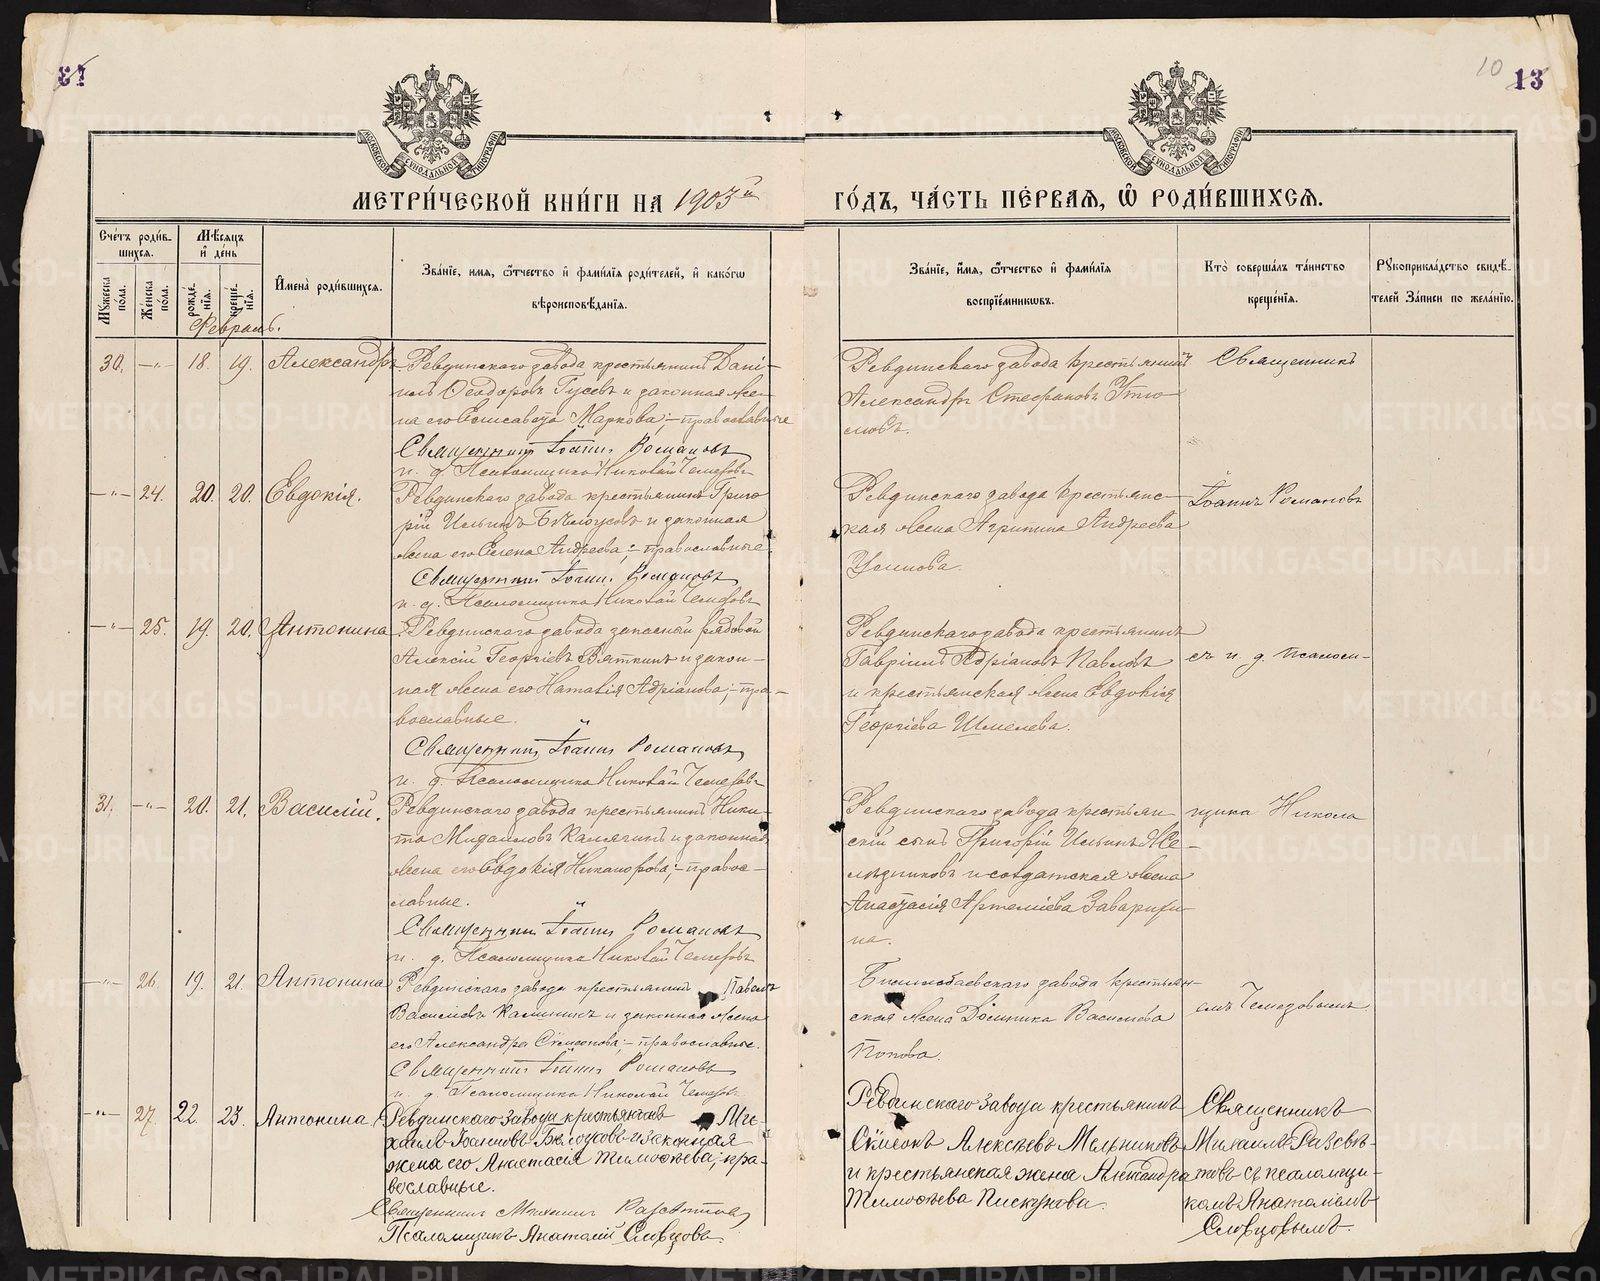 10
13
МОСКОВСКОЙ СУНОДАЛЬНОЙ ТИПОГРАФІИ
МОСКОВСКОЙ СУНОДАЛЬНОЙ ТИПОГРАФІИ
МЕТРИ́ЧЕСКОЙ КНИ́ГИ НА 1903й ГО́ДЪ, ЧА́СТЬ ПЕ́РВАЯ, Ѽ РОДИ́ВШИХСЯ.
Сче́тъ роди́в-
шихся.
Му́жеска по́ла.
Же́нска по́ла.
Мѣ́сяцъ
и҆ де́нь
рожде́-
нїя.
креще́-
нїя.
И҆мена̀ роди́вшихся.
Зва́нїе, и҆́мя, ѻ҆́тчество и҆ фами́лїя роди́телей, и҆ како́гѡ
вѣроисповѣ́данїя.
Зва́нїе, и҆́мя, ѻ҆́тчество и҆ фами́лїя
воспрїе́мникѡвъ.
Кто̀ соверша́лъ та́инство
креще́нїя.
Рꙋкоприкла́дство свидѣ́-
телей За́писи по жела́нїю.
Февраль.
30. -"- 18. 19. Александръ
Ревдинскаго завода крестьянинъ Дані-
илъ Ѳеодоровъ Гусевъ и законная же-
на его Елисавета Маркова; - православные
Священникъ Іоаннъ Романовъ
и. д. Псаломщика Николай Чемезовъ
Ревдинскаго завода крестьянинъ
Александръ Стефановъ Утю-
мовъ.
Священникъ
-"- 24. 20. 20. Евдокія.
Ревдинскаго завода крестьянинъ Григо
рій Ильинъ Бѣлоусовъ и законная
жена его Елена Андреева; - православные.
Священникъ Іоаннъ Романовъ
и. д. Псаломщика Николай Чемезовъ
Ревдинскаго завода крестьянс-
кая жена Агрипина Андреева
Іоаннъ Романовъ
-"- 25. 19. 20. Антонина
Ревдинскаго завода запасной рядовой
Алексій Георгіевъ Вяткинъ и закон-
ная жена его Наталія Адріанова; - пра-
вославные.
Священникъ Іоаннъ Романовъ
и. д. Псаломщика Николай Чемезовъ
Ревдинскаго завода крестьянинъ
Гавріилъ Адріановъ Павловъ
и крестьянская жена Евдокія
Георгіева Шмелева.
съ и. д. псалом-
31. -"- 20. 21. Василій.
Ревдинскаго завода крестьянинъ Ники-
та Михаиловъ Калягинъ и законная
жена его Евдокія Никанорова; - правос-
лавные.
Священникъ Іоаннъ Романовъ
и. д. Псаломщика Николай Чемезовъ
Ревдинскаго завода крестьян
скій сынъ Григорій Ильинъ Ме-
льниковъ и солдатская жена
Анастасія Артеміева Заварихи-
на.
щика Никола
-"- 26. 19. 21. Антонина
Ревдинскаго завода крестьянинъ Павелъ
Василіевъ Калининъ и законная жена
его Александра Симеонова; - православные.
Священникъ Іоаннъ Романовъ
и. д. Псаломщика Николай Чемезовъ
Билимбаевскаго завода крестьян-
ская жена Домника Васильева
Попова.
емъ Чемезовымъ
-"- 27. 22. 23. Антонина.
Ревдинскаго завода крестьянинъ Ми-
хаилъ Іоанновъ Бѣлоусовъ и законная
жена его Анастасія Тимоѳеева; пра-
вославные.
Священникъ Михаилъ Разсвѣтовъ
Псаломщикъ Анатолій Словцовъ.
Ревдинскаго завода крестьянинъ
Симеонъ Алексѣевъ Мельниковъ
и крестьянская жена Александра
Тимоѳеева Пискунова.
Священникъ
Михаилъ Разсвѣ-
товъ съ псаломщи-
комъ Анатоліемъ
Словцовымъ.
METRIKI.GASO-URAL.RU